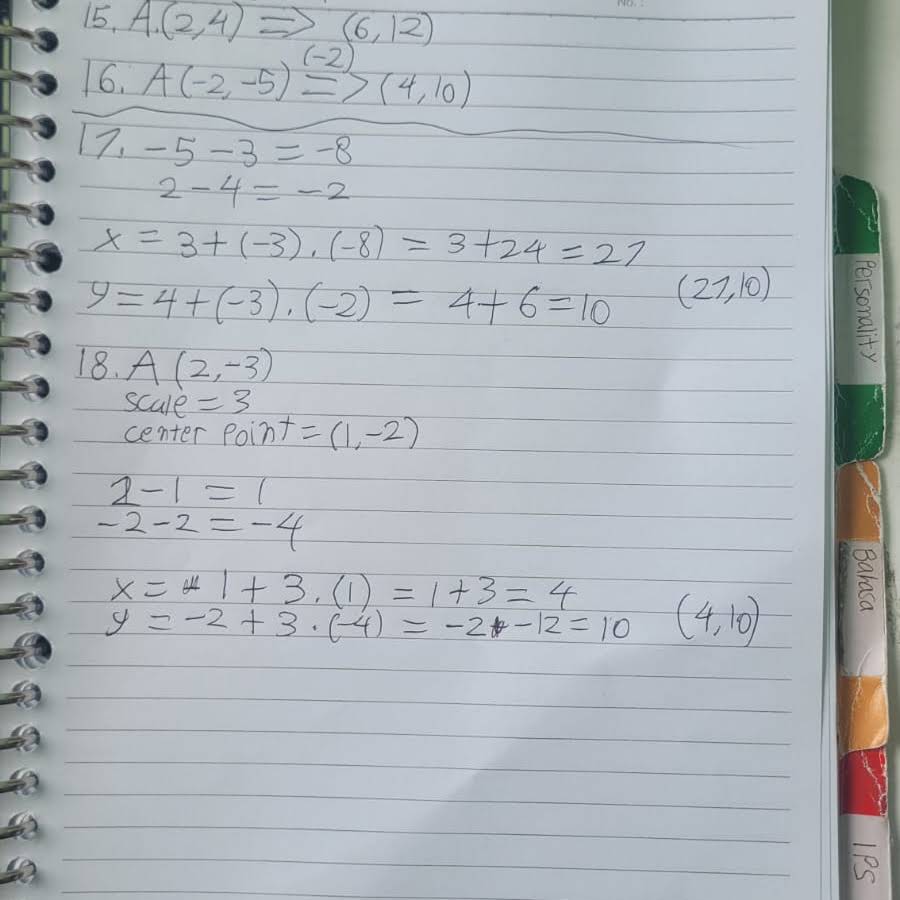 No. :
15. A.(2,4) => (6,12)
(-2)
16. A(-2,-5) => (4,10)
17. -5-3 = -8
2-4 = -2
x = 3+(-3).(-8) = 3+24 = 27
y = 4+(-3).(-2) = 4+6 = 10 (27,10)
18. A (2,-3)
scale = 3
center point = (1,-2)
2-1 = 1
-2-2 = -4
x = 1 + 3.(1) = 1+3 = 4
y = -2 + 3.(-4) = -2 -12 = 10 (4,10)
Personality
Bahasa
IPS